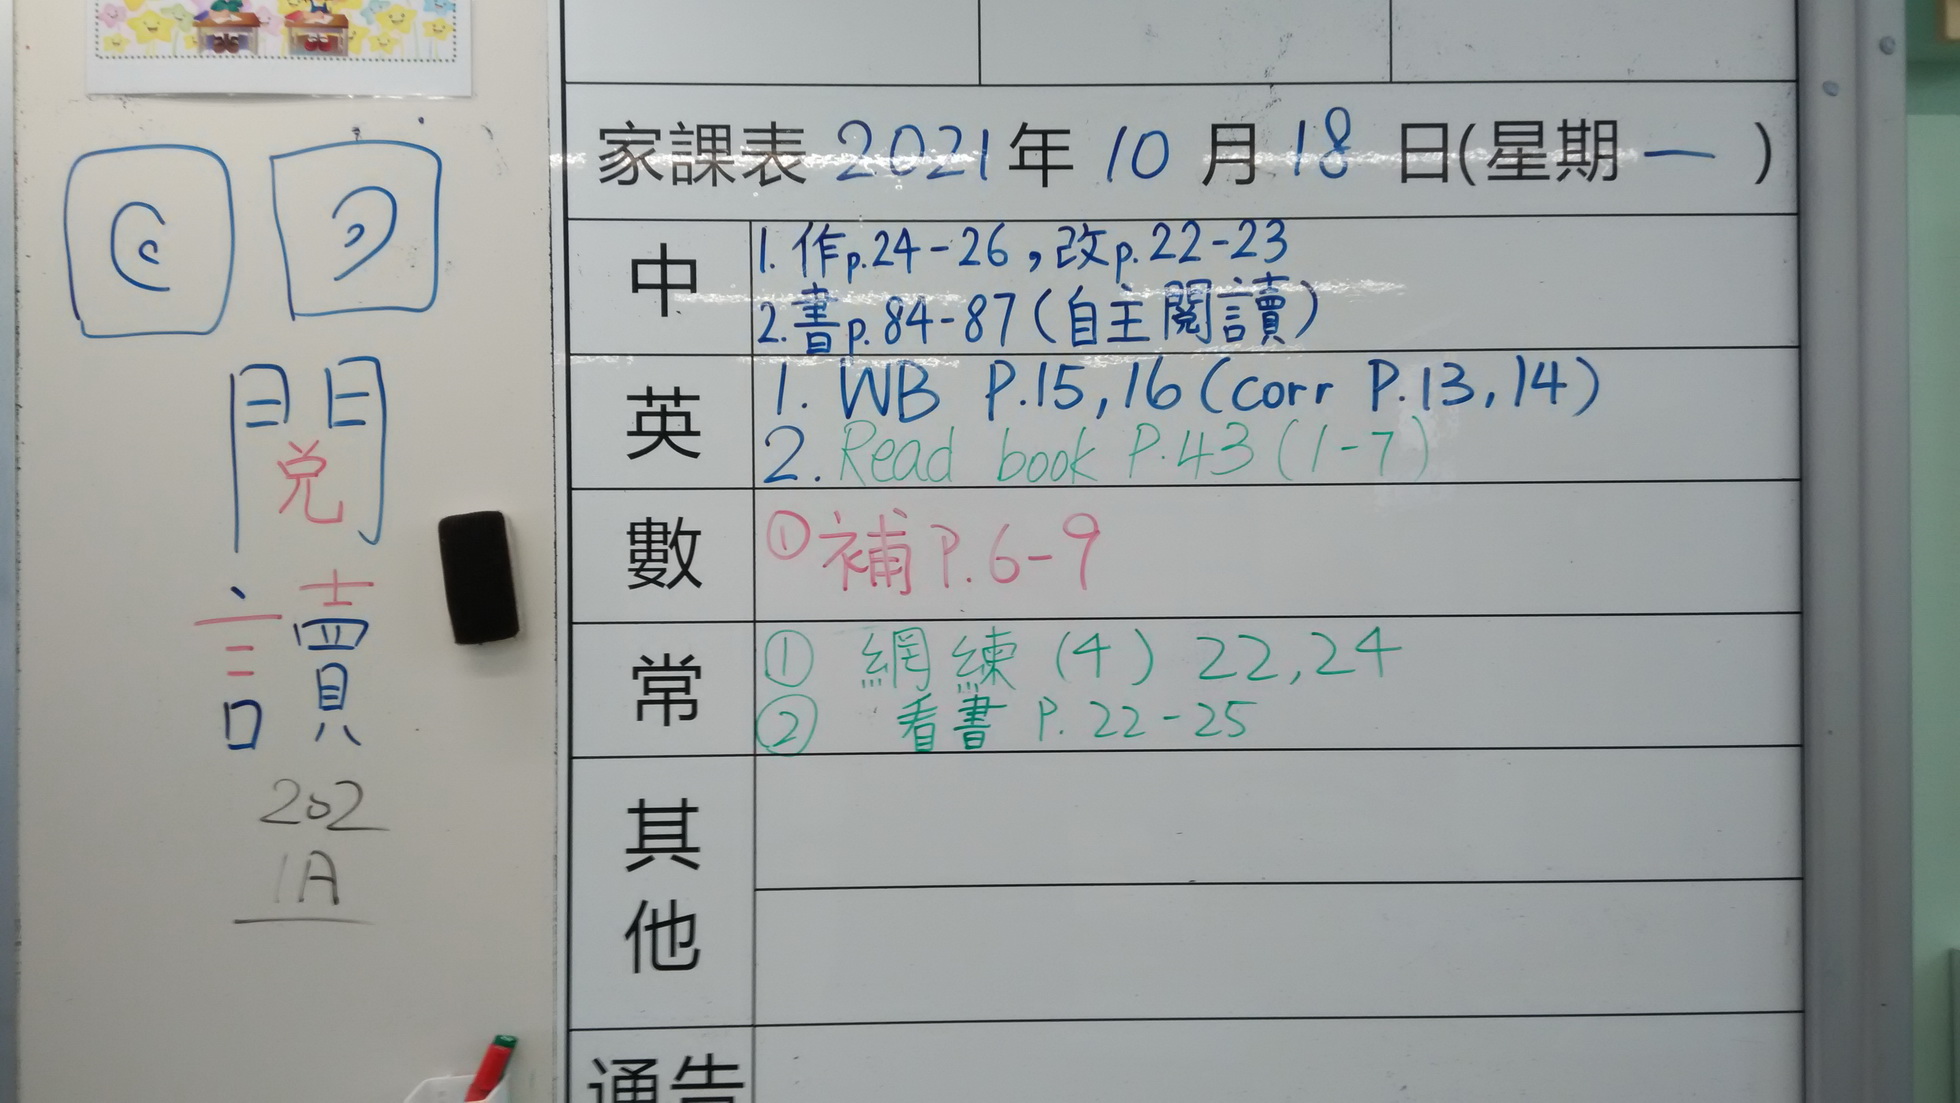 閱
讀
202
1A
家課表 2021年 10 月 18 日(星期一 )
中
1. 作p.24-26,改p.22-23
2.書p.84-87(自主閱讀)
英
1. WB P.15,16(corr P.13,14)
2. Read book P.43(1-7)
數
①補P.6-9
常
① 網練 (4) 22,24
② 看書 P.22-25
其他
通告